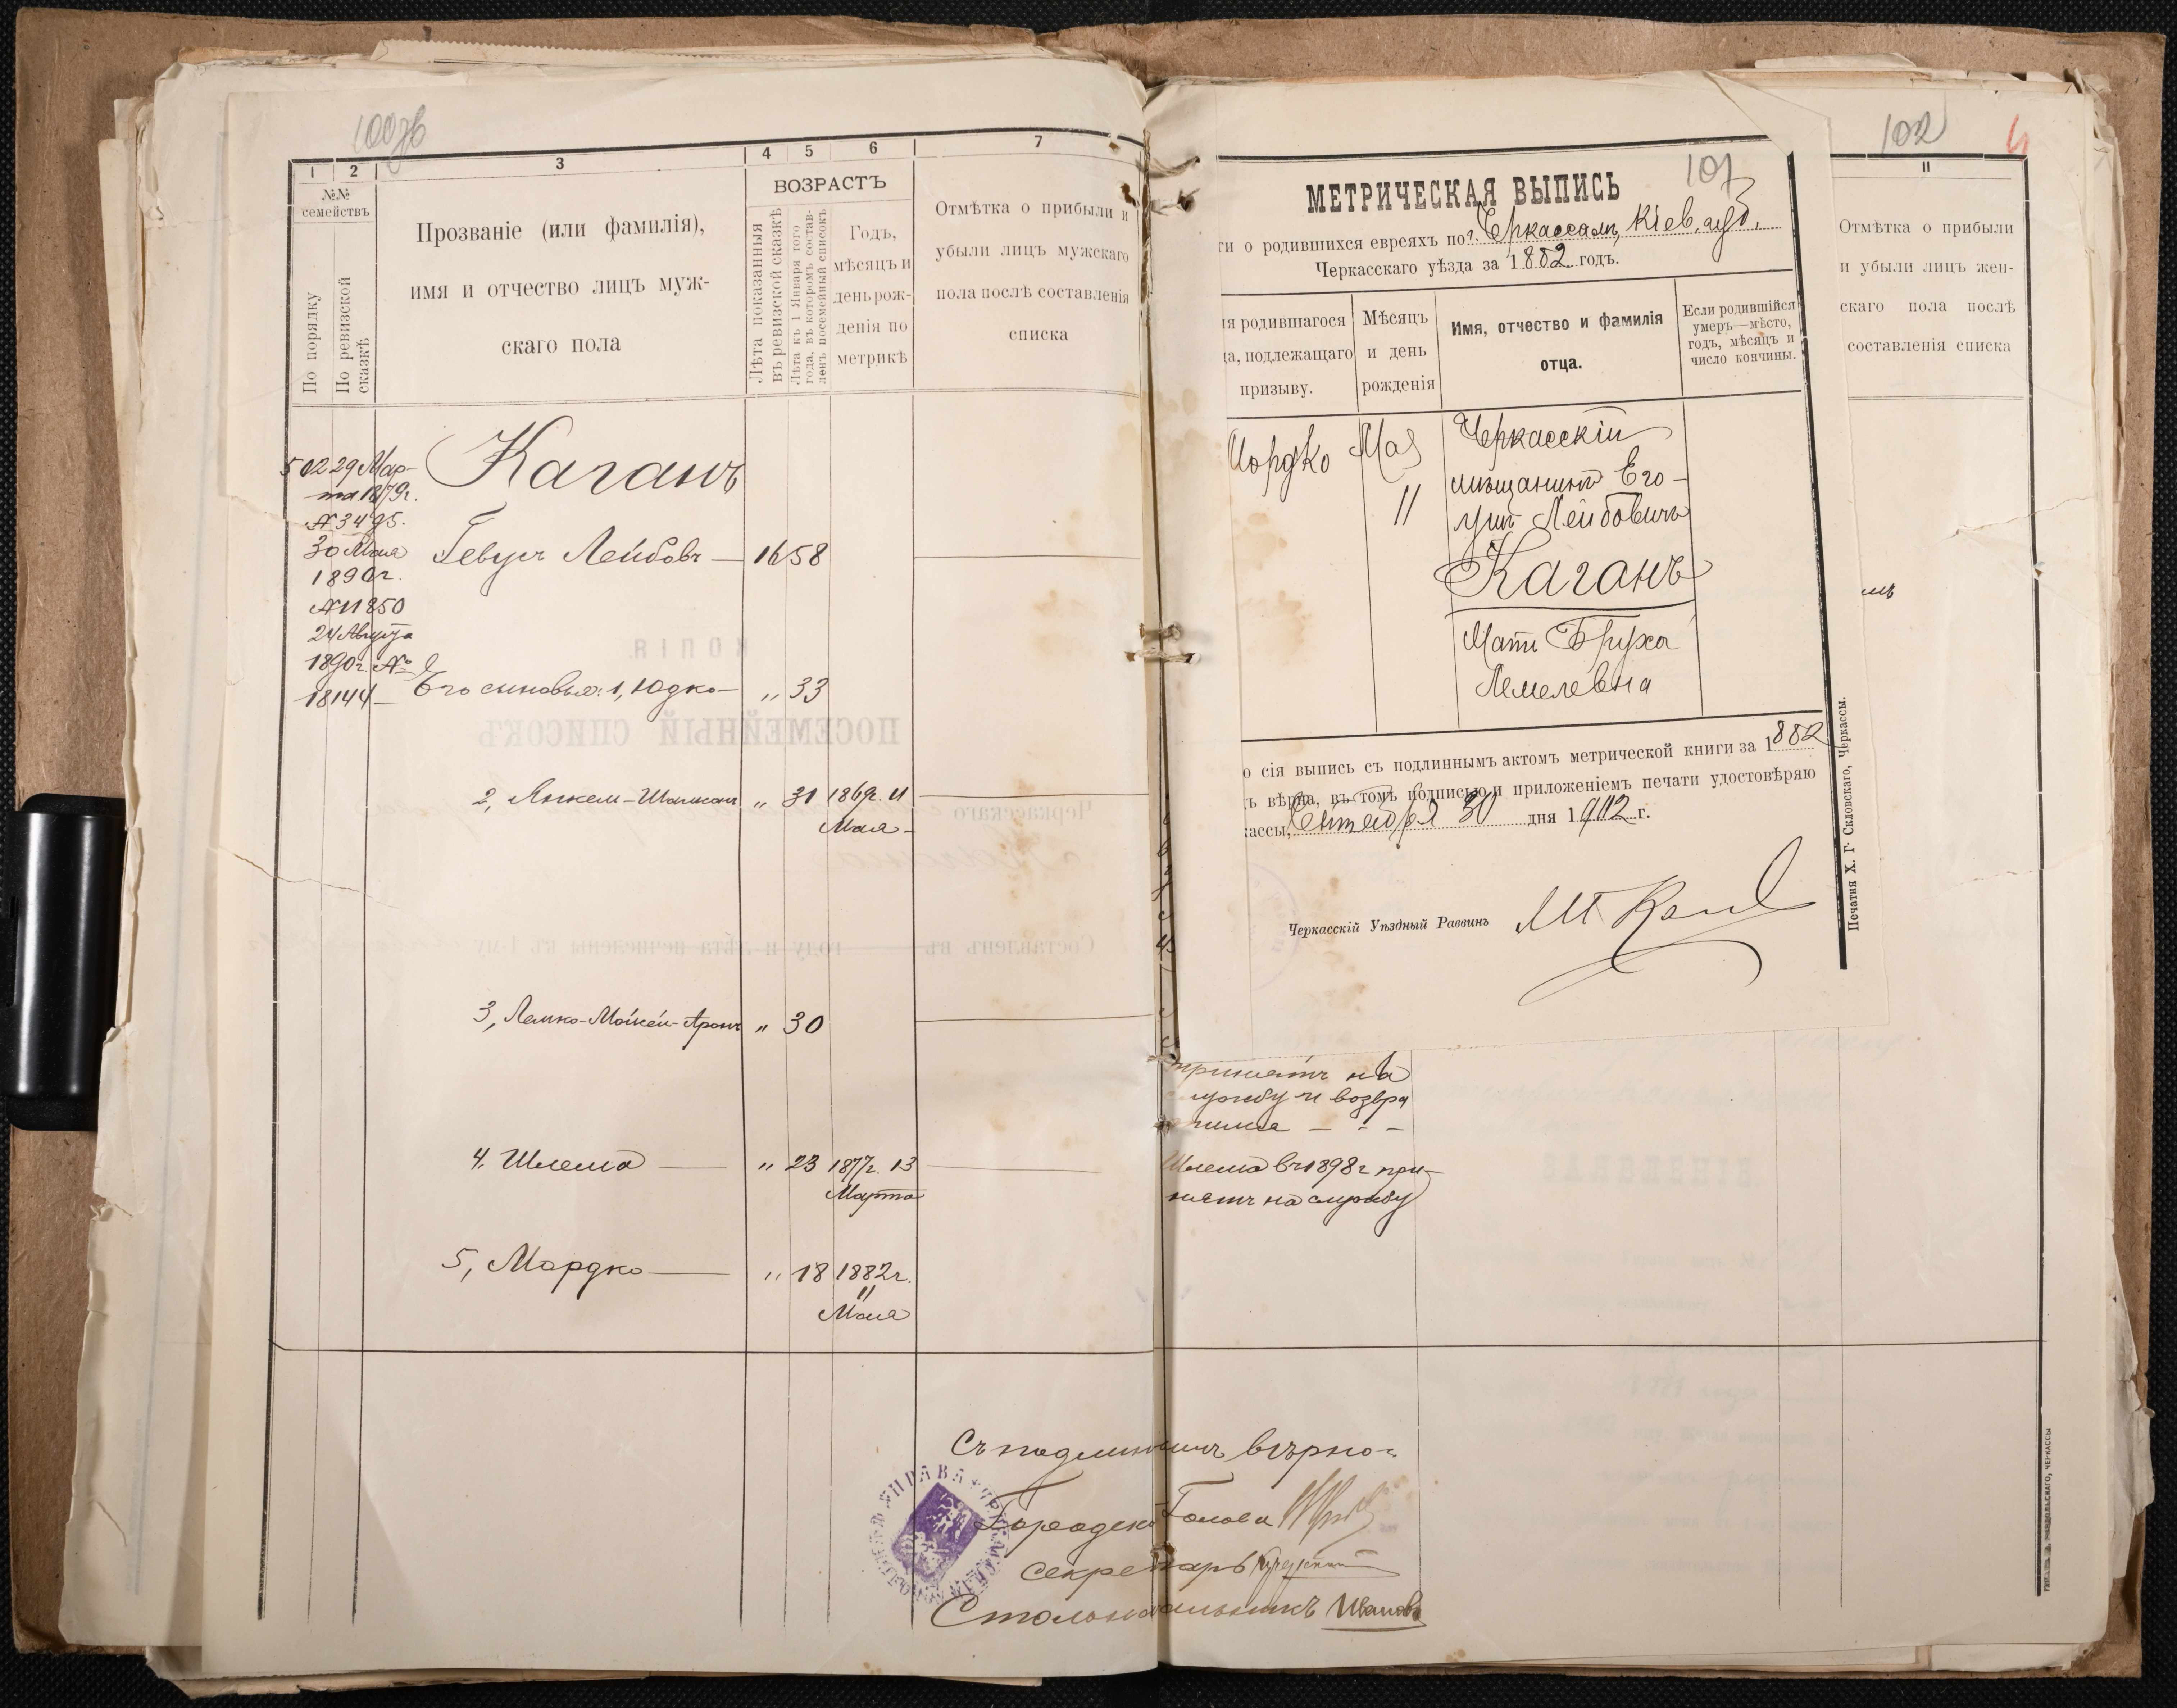 100 об
1
2
3
4
5
6
7
№№
семействъ
По порядку
По ревизской
сказкѣ
Прозваніе (или фамилія),
имя и отчество лицъ муж-
скаго пола
ВОЗРАСТЪ
Лѣта показанныя
въ ревизской сказкѣ
Лѣта къ 1 Января того
года, въ которомъ состав-
ленъ посемейный списокъ
Годъ,
мѣсяцъ и
день рож-
денія по
метрикѣ
Отмѣтка о прибыли и
убыли лицъ мужскаго
пола послѣ составленія
списка
502 29 Мар-
та 1879г.
№ 3495.
30 Мая
1890г.
№ 11850
24 Августа
1890г. №
18144
Каганъ
Гевушъ Лейбовъ — 16 58
Его сыновья: 1, Юдко — „ 33
2, Янкель-Шимонъ „ 31 1869г. 11
Мая -
3, Лемко-Мойсей-Аронъ „ 30
4. Шлема — „ 23 1877г. 13
Марта
5, Мордко — „ 18 1882г.
11
Мая
КОПІЯ
ПОСЕМЕЙНЫЙ СПИСОКЪ
Черкасскаго
Составленъ въ году и лѣта исчислены къ 1-му
101
МЕТРИЧЕСКАЯ ВЫПИСЬ
ти о родившихся евреяхъ по г. Черкассамъ, Кіев. губ.
Черкасскаго уѣзда за 1882 годъ.
я родившагося
а, подлежащаго
призыву.
Мѣсяцъ
и день
рожденія
Имя, отчество и фамилія
отца.
Если родившійся
умеръ—мѣсто,
годъ, мѣсяцъ и
число кончины.
Мордко
Мая
11
Черкасскій
мѣщанинъ Его-
ушъ Лейбовичъ
Каганъ
Мать Бруха
Лемелевна
о сія выпись съ подлиннымъ актомъ метрической книги за 1882
ъ вѣрна, въ томъ подписью и приложеніемъ печати удостовѣряю
кассы, Сентября 30 дня 1902 г.
Черкасскій Уѣздный Раввинъ
Печатня Х. Г. Скловскаго, Черкассы.
102
11
Отмѣтка о прибыли
и убыли лицъ жен-
скаго пола послѣ
составленія списка
мъ
принятъ на
службу и возвра
тился — - -
Шлема въ 1898г при-
нятъ на службу
Съ подлиннымъ вѣрно:
Городской Голова
Секретарь
Столоначальникъ Иванов